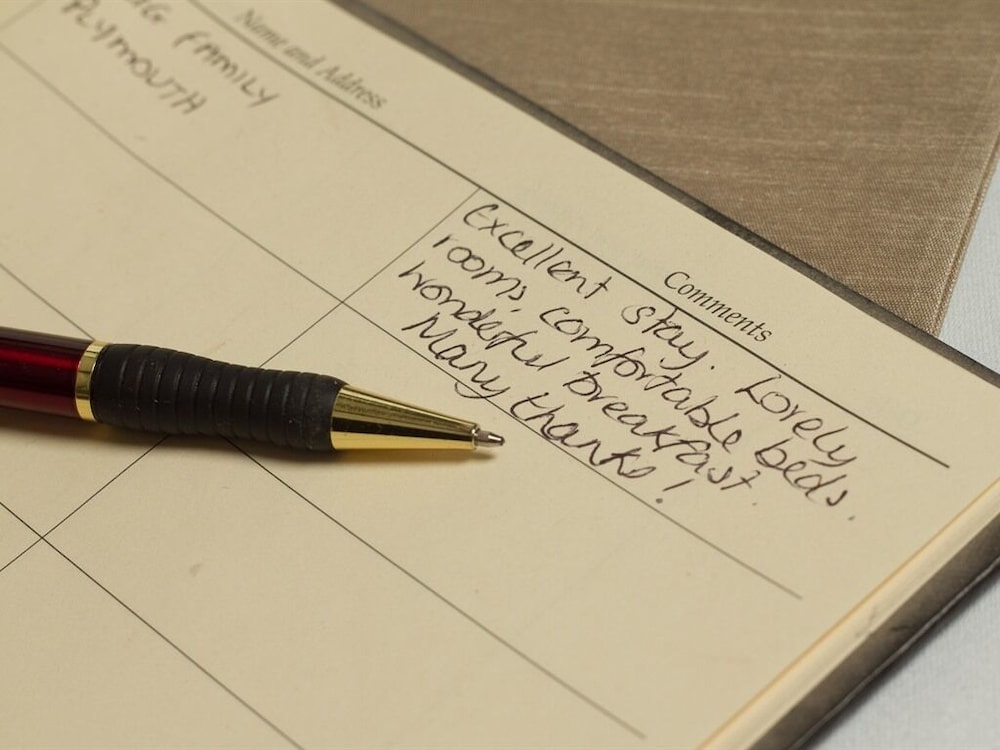 Name and Address
Comments
FAMILY
PLYMOUTH
Excellent stay. Lovely
rooms, comfortable beds.
Wonderful breakfast.
Many thanks!